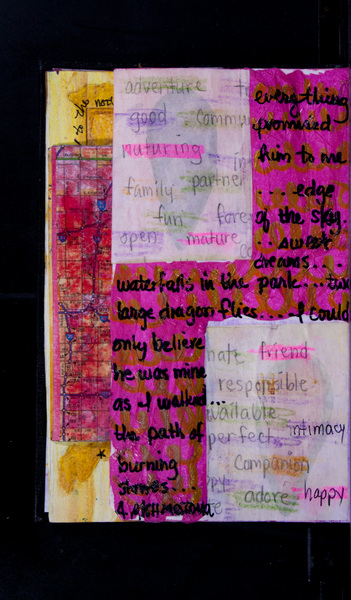 adventure
good commu
nuturing
family partner
fun fore
open mature
everything
promised
him to me
....edge
of the sky.
..sweet
dreams...
waterfalls in the park...two
large dragon flies....I could
only believe
he was mine
as I walked...
the path of
burning
nate friend
responsible
available
perfect intimacy
companion
adore happy